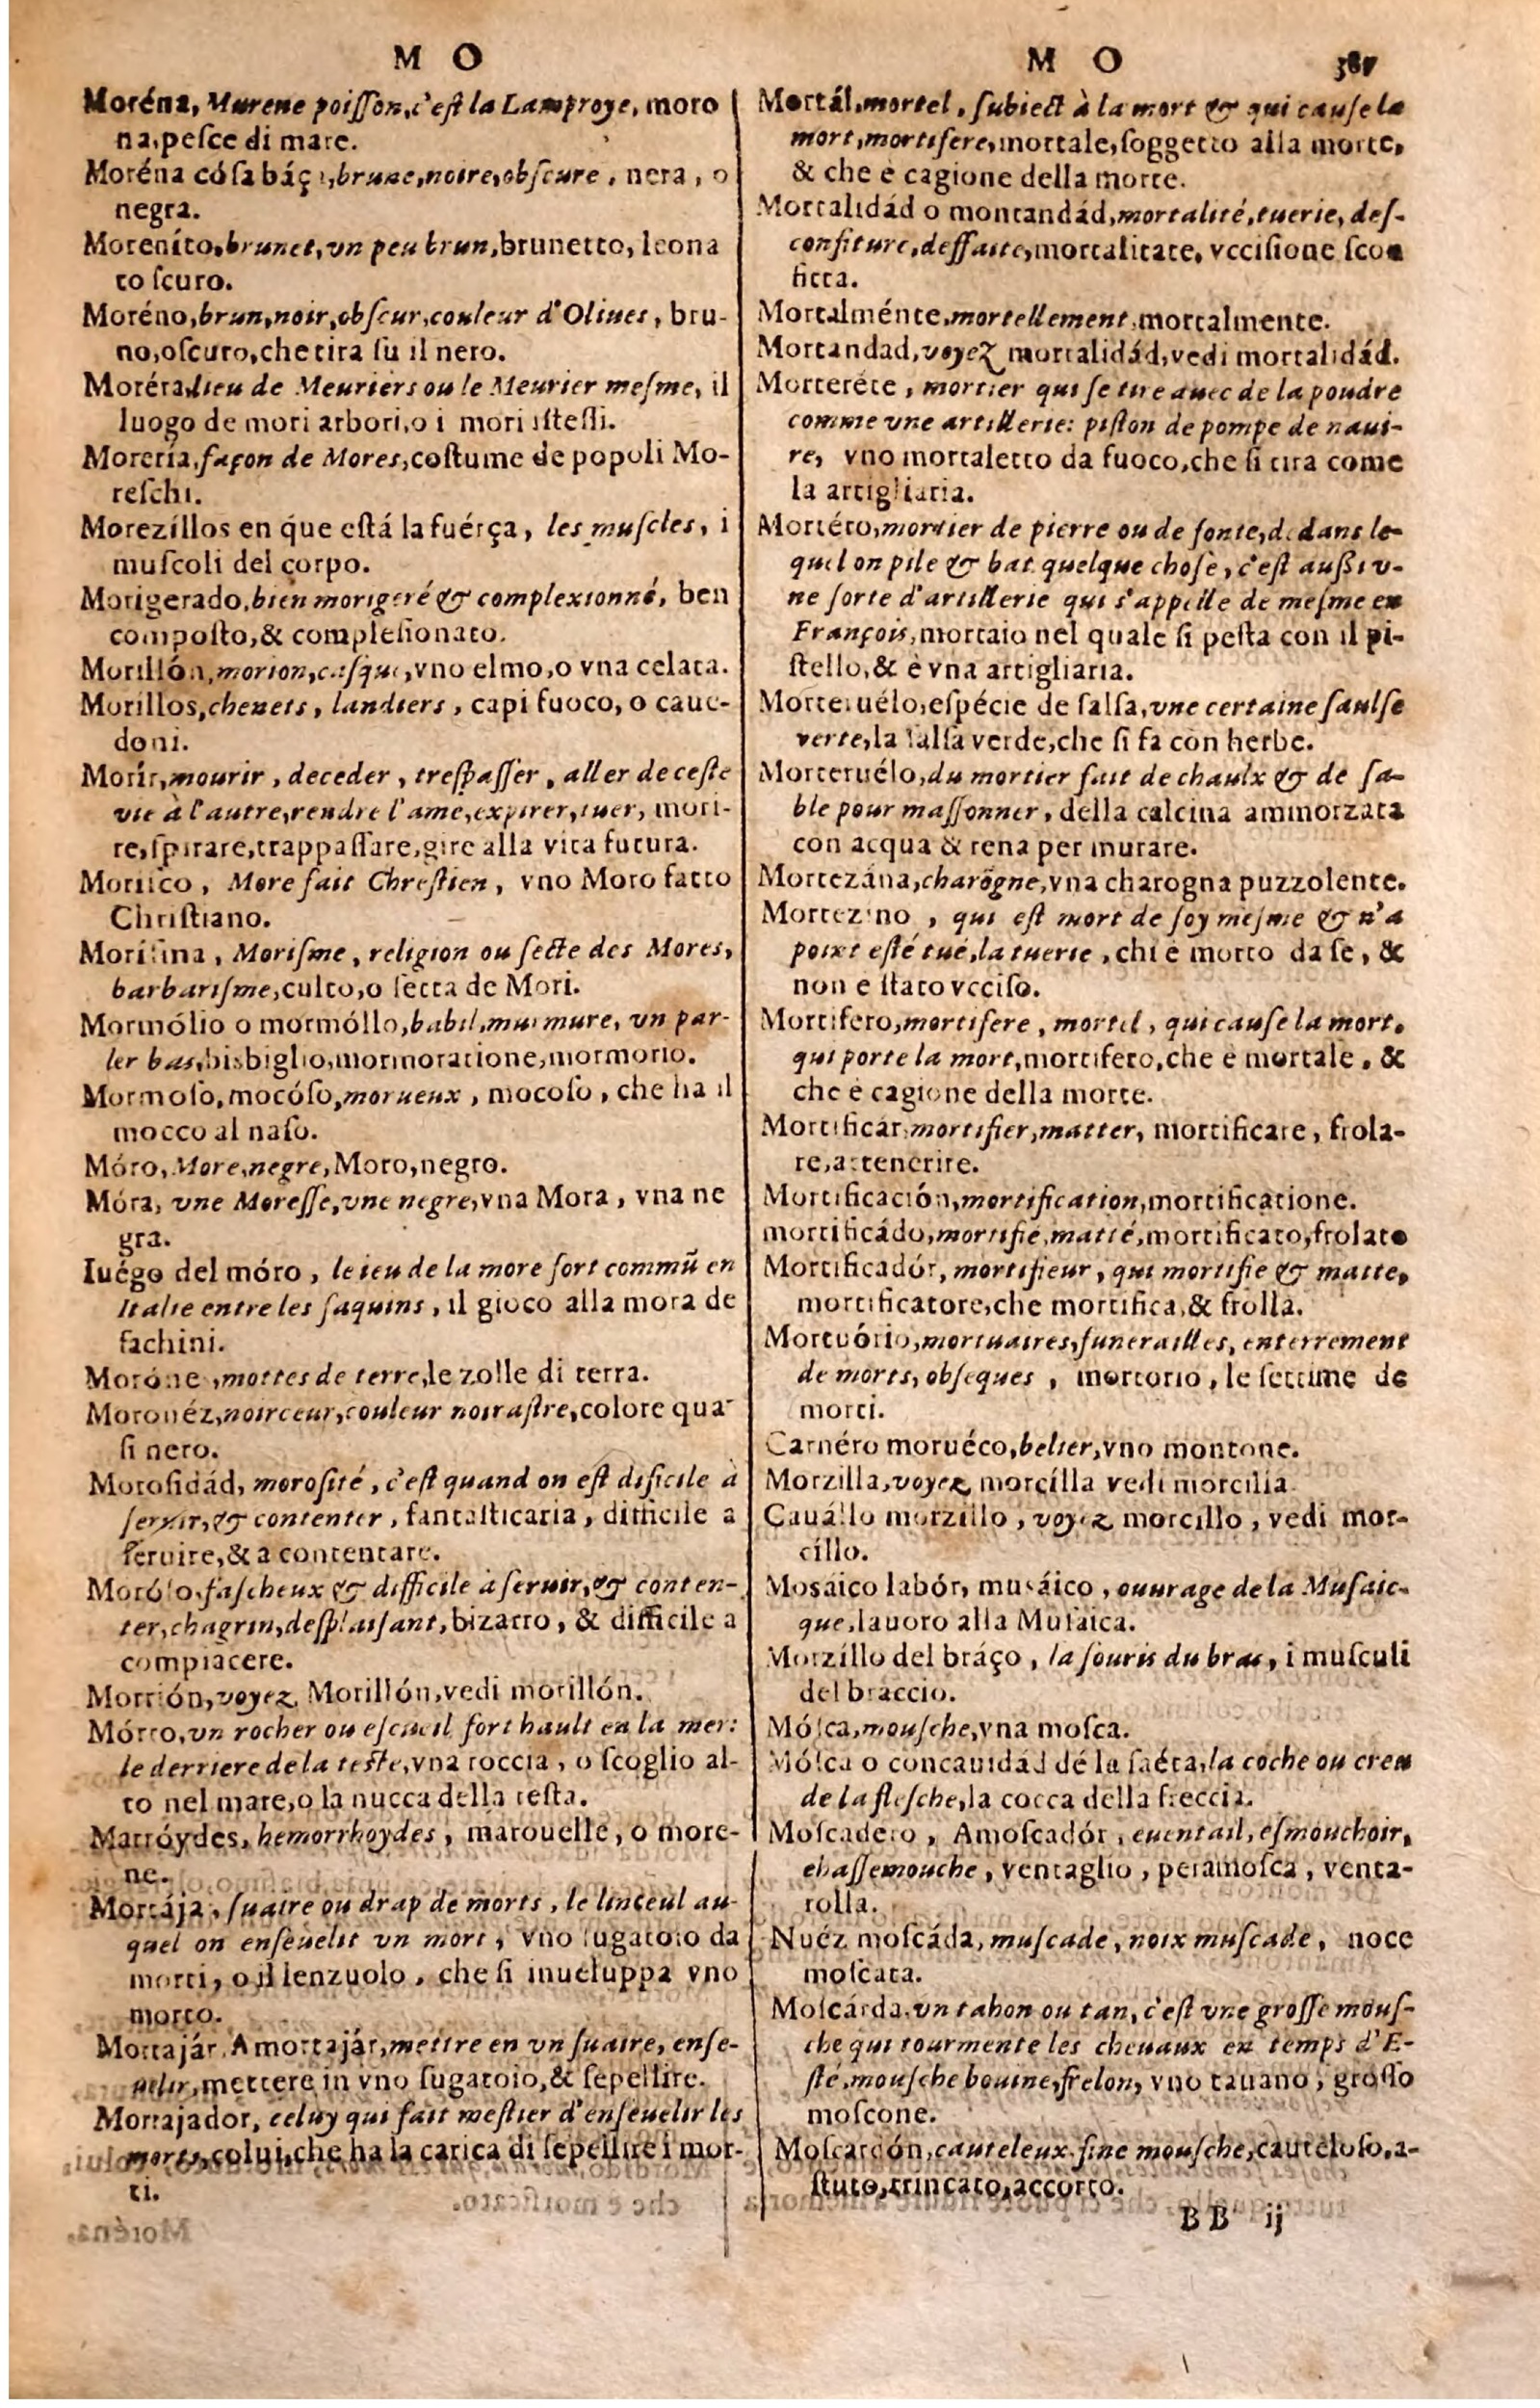 M O
Moréna, Murene poiſſon, c'eſt la Lamproye, moro
na, peſce di mare.
Moréna cóſa báç, brune, noire, obſcure, nera, o
negra.
Moreníto, brunet, vn peu brun, brunetto, leona
to ſcuro.
Moréno, brun, noir, obſcur, couleur d'Oliues, bru-
no, oſcuro, che tira ſu il nero.
Moréra, lieu de Meuriers ou le Meurier meſme, il
luogo de mori arbori, o i mori iſteſſi.
Morería, façon de Mores, coſtume de popoli Mo-
reſchi.
Morezíllos en que eſtá la fuérça, les muſcles, i
muſcoli del corpo.
Morigerado, bien morigeré & complexionné, ben
compoſto, & compleſionato.
Morillón, morion, caſque, vno elmo, o vna celata.
Morillos, chenets, landiers, capi fuoco, o caue-
doni.
Morír, mourir, deceder, treſpaſſer, aller de ceſte
vie à l'autre, rendre l'ame, expirer, tuer, mori-
re, ſpirare, trappaſſare, gire alla vita futura.
Moriſco, More fait Chreſtien, vno Moro fatto
Chriſtiano.
Moríſma, Moriſme, religion ou ſecte des Mores,
barbariſme, culto, o ſetta de Mori.
Mormólio o mormóllo, babil, murmure, vn par-
ler bas, bisbiglio, mormoratione, mormorio.
Mormoſo, mocóſo, morueux, mocoſo, che ha il
mocco al naſo.
Móro, More, negre, Moro, negro.
Móra, vne Moreſſe, vne negre, vna Mora, vna ne
gra.
Iuégo del móro, le ieu de la more fort commũ en
Italie entre les faquins, il gioco alla mora de
fachini.
Moróne, mottes de terre, le zolle di terra.
Moronéz, noirceur, couleur noiraſtre, colore qua-
ſi nero.
Moroſidád, moroſité, c'eſt quand on eſt dificile à
ſeruir, & contenter, fantaſticaria, difficile a
ſeruire, & a contentare.
Moróſo, faſcheux & difficile à ſeruir, & conten-
ter, chagrin, deſplaiſant, bizarro, & difficile a
compiacere.
Morrión, voyez Morillón, vedi morillón.
Mórro, vn rocher ou eſcueil fort hault en la mer:
le derriere de la teſte, vna roccia, o ſcoglio al-
to nel mare, o la nucca della teſta.
Marróydes, hemorrhoydes, marouelle, o more-
ne.
Mortája, ſuaire ou drap de morts, le linceul au-
quel on enſeuelit vn mort, vno ſugatoio da
morti, o il lenzuolo, che ſi inueluppa vno
morto.
Mortajár, Amortajár, mettre en vn ſuaire, enſe-
uelir, mettere in vno ſugatoio, & ſepellire.
Mortajador, celuy qui fait meſtier d'enſeuelir les
morts, colui, che ha la carica di ſepellire i mor-
ti.
M O
Mortál, mortel, ſubiect à la mort & qui cauſe la
mort, mortifere, mortale, ſoggetto alla morte,
& che è cagione della morte.
Mortalidád o montandád, mortalité, tuerie, deſ-
confiture, deffaite, mortalitate, vcciſione ſcon
fitta.
Mortalménte, mortellement, mortalmente.
Mortandad, voyez mortalidád, vedi mortalidád.
Morteréte, mortier qui ſe tire auec de la poudre
comme vne artillerie: piſton de pompe de naui-
re, vno mortaletto da fuoco, che ſi tira come
la artigliaria.
Mortéro, mortier de pierre ou de fonte, dedans le-
quel on pile & bat quelque choſe, c'eſt auſſi v-
ne ſorte d'artillerie qui s'appelle de meſme en
François, mortaio nel quale ſi peſta con il pi-
ſtello, & è vna artigliaria.
Morteruélo, eſpécie de ſalſa, vne certaine ſaulſe
verte, la ſalſa verde, che ſi fa con herbe.
Morteruélo, du mortier fait de chaulx & de ſa-
ble pour maſſonner, della calcina ammorzata
con acqua & rena per murare.
Mortezána, charõgne, vna charogna puzzolente.
Mortezino, qui eſt mort de ſoy meſme & n'a
point eſté tué, la tuerie, chi è morto da ſe, &
non e ſtato vcciſo.
Mortifero, mortifere, mortel, qui cauſe la mort,
qui porte la mort, mortifero, che è mortale, &
che è cagione della morte.
Mortificár, mortifier, matter, mortificare, frola-
re, attenerire.
Mortificación, mortification, mortificatione.
mortificádo, mortifié, matté, mortificato, frolato
Mortificadór, mortifieur, qui mortifie & matte,
mortificatore, che mortifica, & frolla.
Mortuório, mortuaires, funerailles, enterrement
de morts, obſeques, mortorio, le ſettime de
morti.
Carnéro moruéco, belier, vno montone.
Morzilla, voyez morcílla vedi morcilia
Cauállo morzillo, voyez morcillo, vedi mor-
cillo.
Moſáico labór, muſáico, ouurage de la Muſaic-
que, lauoro alla Muſaica.
Morzíllo del bráço, la ſouris du bras, i muſculi
del braccio.
Móſca, mouſche, vna moſca.
Móſca o concauidád dé la ſaéta, la coche ou creu
de la fleſche, la cocca della freccia.
Moſcadero, Amoſcadór, euentail, eſmouchoir,
chaſſemouche, ventaglio, peramoſca, venta-
rolla.
Nuéz moſcáda, muſcade, noix muſcade, noce
moſcata.
Moſcárda, vn tahon ou tan, c'eſt vne groſſe mouſ-
che qui tourmente les cheuaux en temps d'E-
ſté, mouſche bouine, frelon, vno tauano, groſſo
moſcone.
Moſcardón, cauteleux, fine mouſche, cauteloſo, a-
ſtuto, trincato, accorto.
BB ij